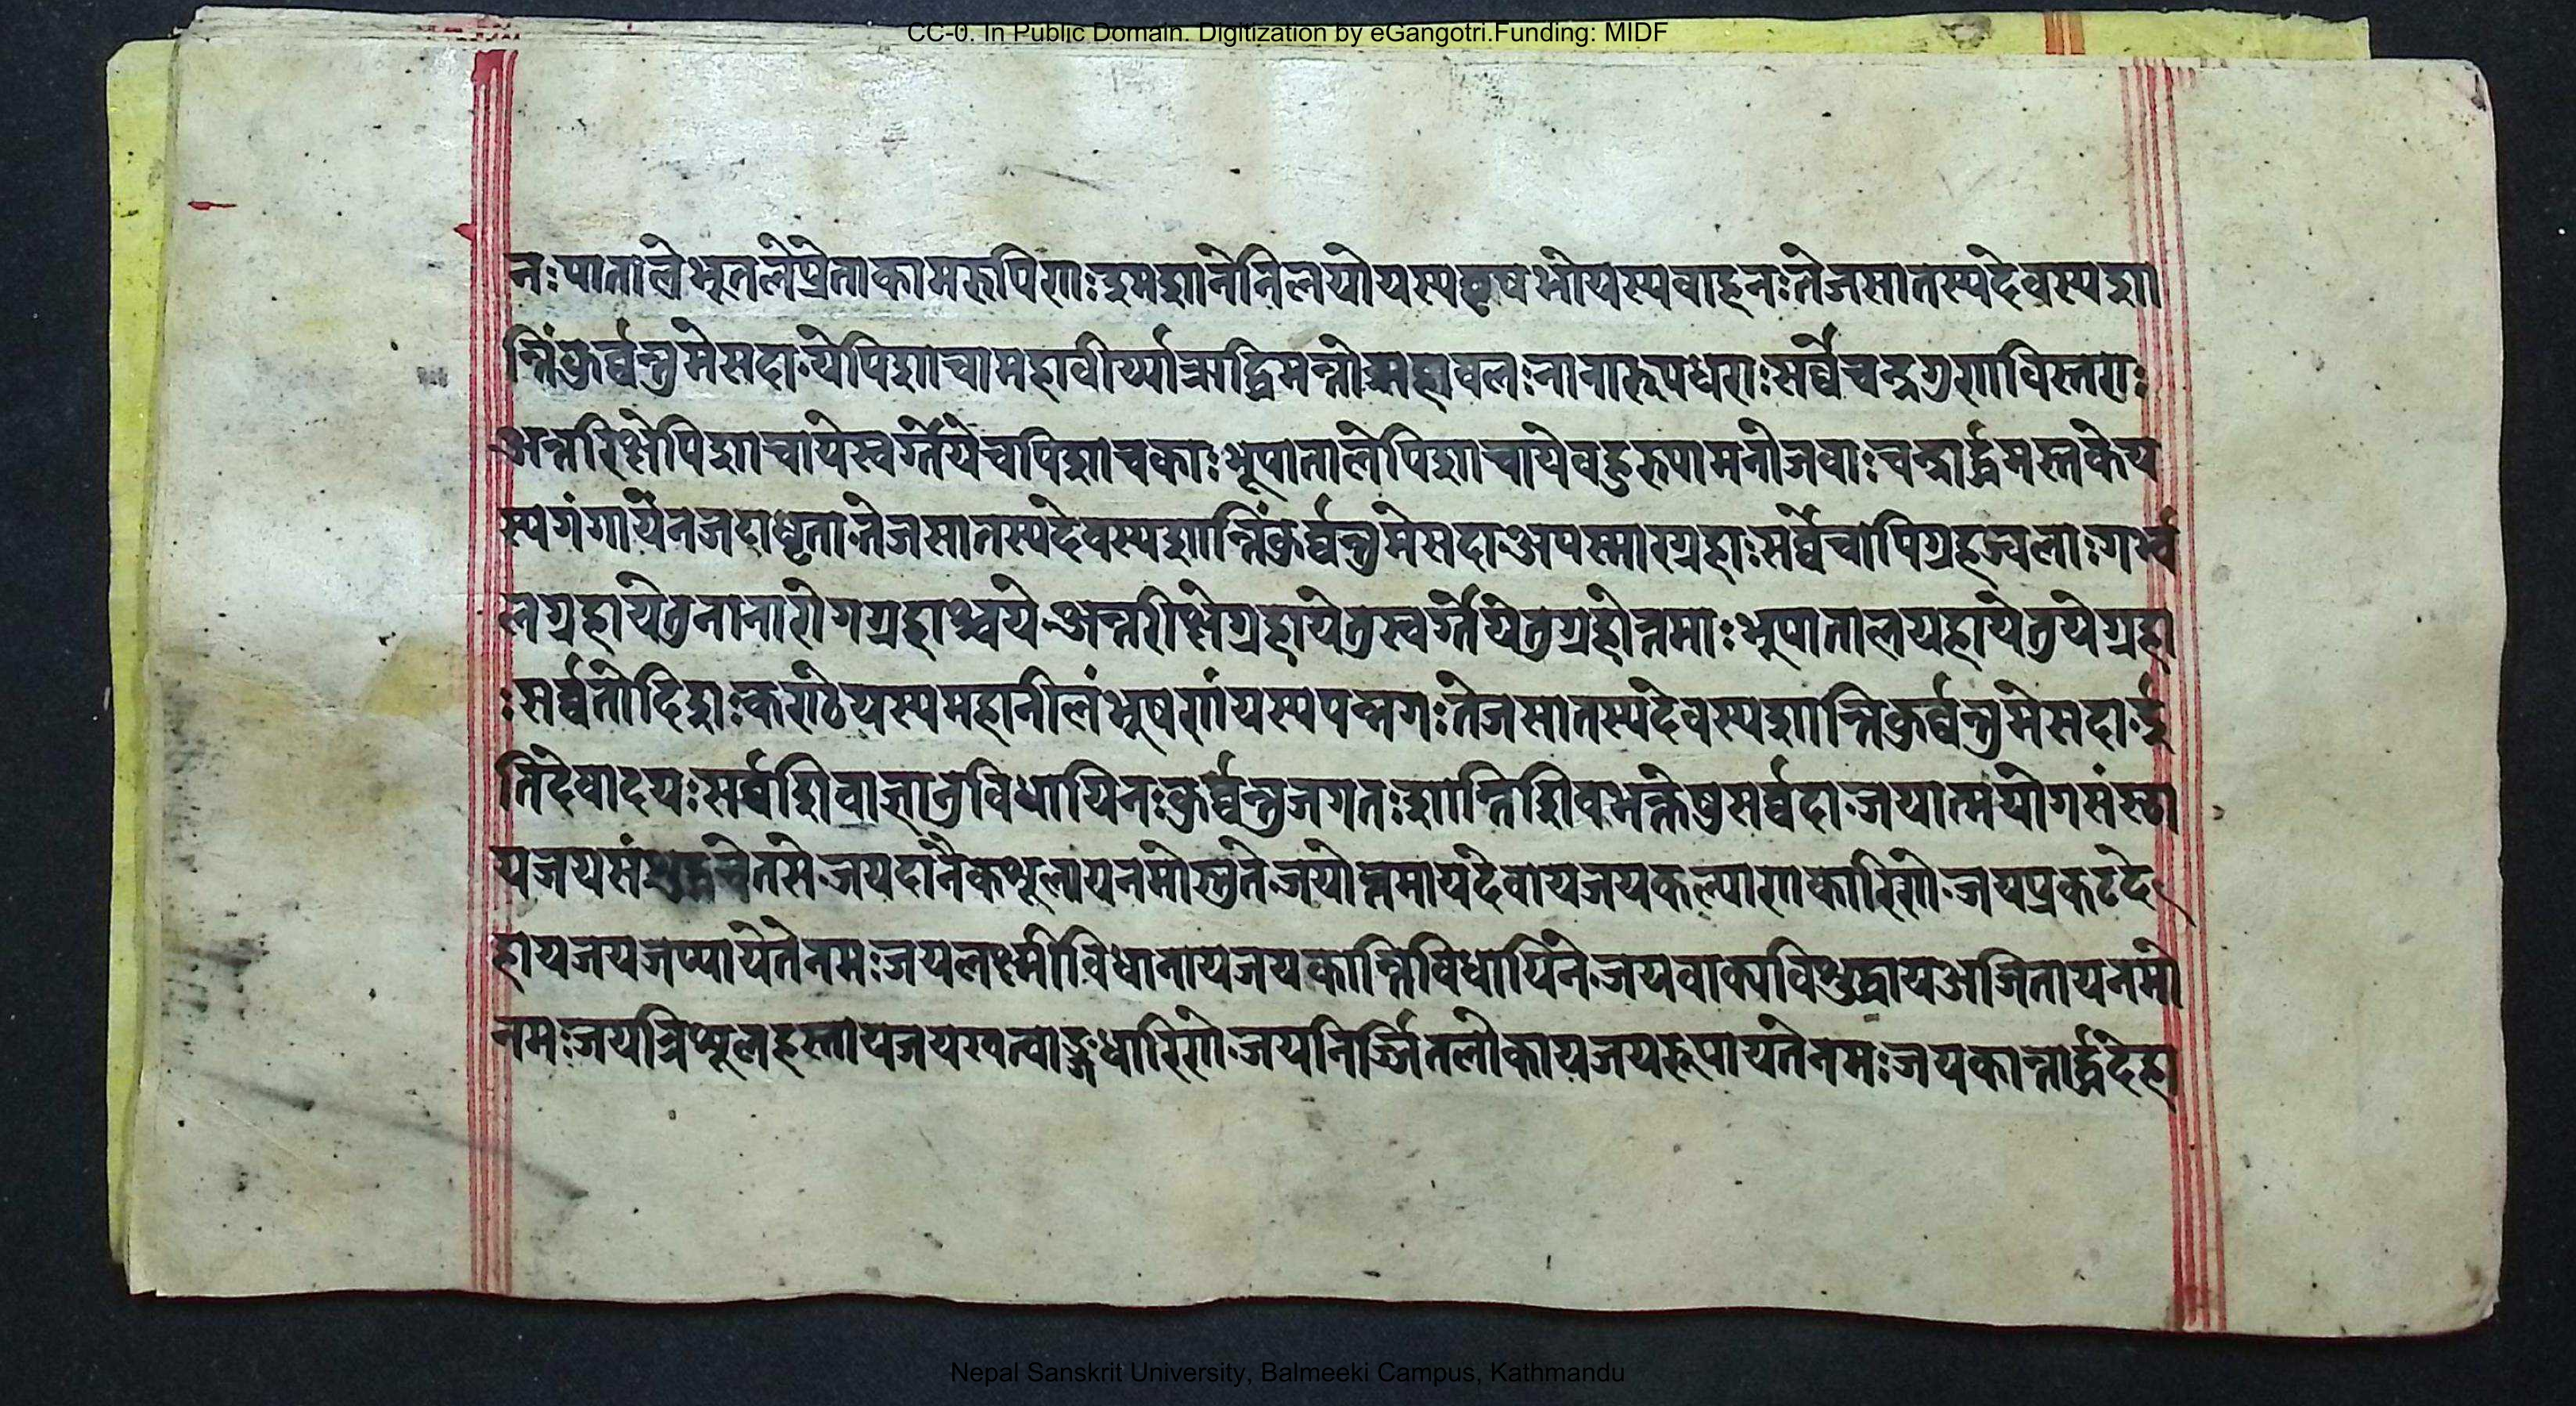 CC-0. In Public Domain. Digitization by eGangotri.Funding: MIDF
नः पाताले भूतले प्रेता कामरुपिणः श्मशाने निलयो यस्य वृषभो यस्य वाहनः तेजसा तस्य देवस्य शा
न्तिं कुर्व्वन्तु मे सदा ये पिशाचा महावीर्य्या ऋद्धिमन्तो महाबल नानारूपधराः सर्व्वे च गुण विस्तराः
अन्तरिक्षे पिशाचा ये स्वर्गे ये च पिशाचकाः भूपाताले पिशाचा ये बहुरुपा मनोजवाः चन्द्रार्द्ध मस्तके य
स्य गंगा येन जटा धृता तेजसा तस्य देवस्य शान्तिं कुर्व्वन्तु मे सदा अपस्मारग्रहाः सर्व्वे चापि ग्रह ज्वलाः गर्भ्भ
लग्रहा ये तु नानारोगग्रहाश्च ये अन्तरीक्षे ग्रहा ये तु स्वर्गे ये तु ग्रहोत्तमाः भूपातालग्रहा ये तु ये ग्रहा
ः सर्व्वतो दिशः कण्ठे यस्य महानीलं भूषणं यस्य पन्नगः तेजसा तस्य देवस्य शान्ति कुर्व्वन्तु मे सदा इ
ति देवादयः सर्व्व शिवाज्ञानुविधायिनः कुर्व्वन्तु जगतः शान्ति शिवभक्तेषु सर्व्वदा जयात्मयोगसंस्था
य जय संशुद्धचेतसे जय दानैकशूलाय नमोस्तुते जयोत्तमाय देवाय जय कल्याणकारिणे जय प्रकटदे
हाय जय जप्याय ते नमः जय लक्ष्मीविधानाय जय कान्तिविधायिने जय वाक्यविशुद्धाय अजिताय नमो
नमः जय त्रिशूलहस्ताय जय खट्वाङ्गधारिणे जय निर्ज्जितलोकाय जय रूपाय ते नमः जय कान्तार्द्धदेहा
Nepal Sanskrit University, Balmeeki Campus, Kathmandu